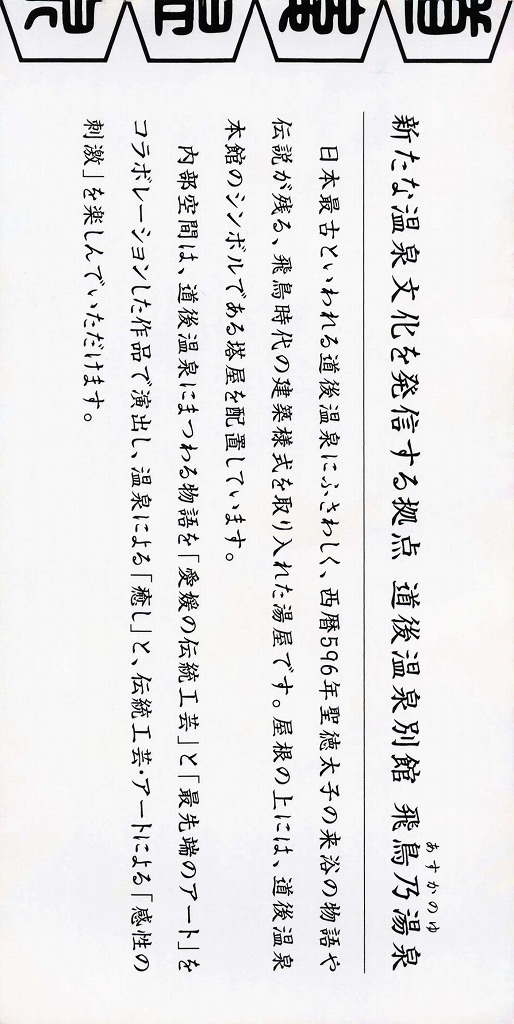 新たな温泉文化を発信する拠点 道後温泉別館 飛鳥乃湯泉
あすかのゆ
日本最古といわれる道後温泉にふさわしく、西暦596年聖徳太子の来浴の物語や
伝説が残る、飛鳥時代の建築様式を取り入れた湯屋です。屋根の上には、道後温泉
本館のシンボルである塔屋を配置しています。
内部空間は、道後温泉にまつわる物語を「愛媛の伝統工芸」と「最先端のアート」を
コラボレーションした作品で演出し、温泉による「癒し」と、伝統工芸・アートによる「感性の
刺激」を楽しんでいただけます。